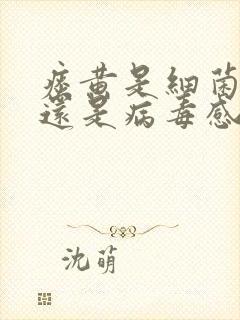 痘黄是細菌
還是病毒感
沈萌